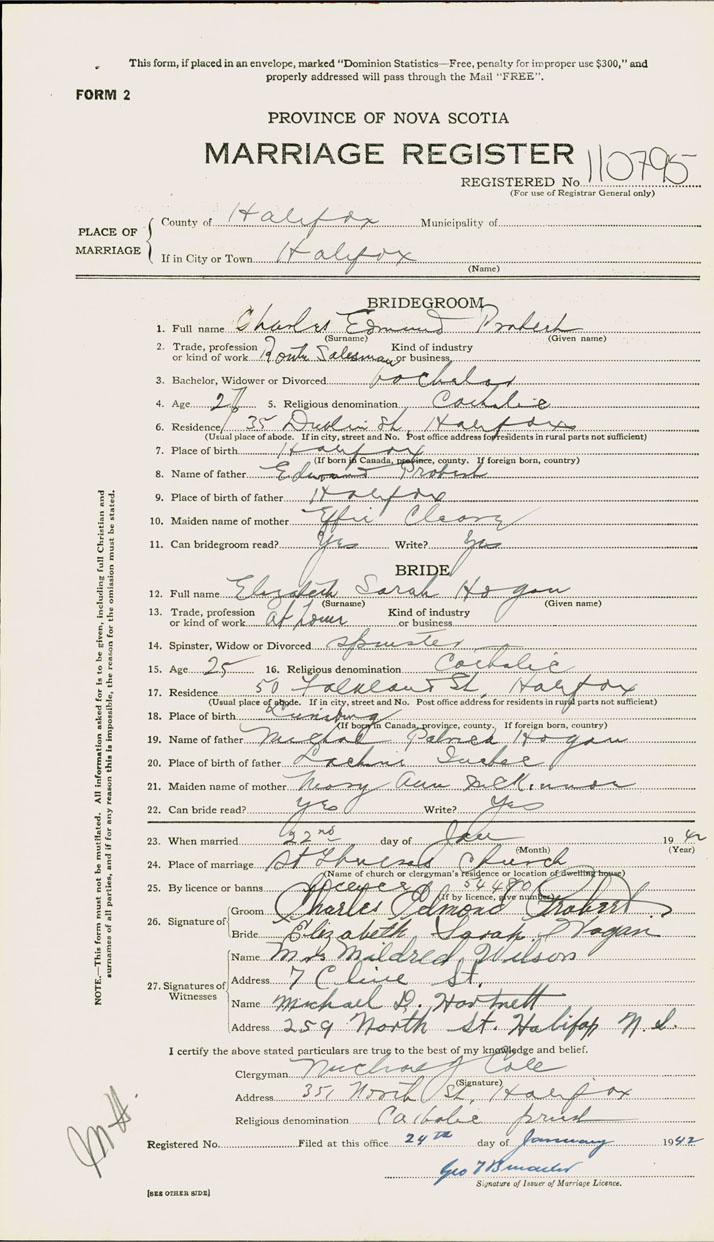 This form, if placed in an envelope, marked "Dominion Statistics—Free, penalty for improper use $300," and
properly addressed will pass through the Mail "FREE".
FORM 2
PROVINCE OF NOVA SCOTIA
MARRIAGE REGISTER
REGISTERED No. 110795
(For use of Registrar General only)
PLACE OF MARRIAGE
County of Halifax Municipality of
If in City or Town Halifax
(Name)
BRIDEGROOM
1. Full name Charles Edmund Probert
(Surname) (Given name)
2. Trade, profession or kind of work Route Salesman Kind of industry or business
3. Bachelor, Widower or Divorced bachelor
4. Age 5. Religious denomination Catholic
6. Residence 35 Dublin St, Halifax
(Usual place of abode. If in city, street and No. Post office address for residents in rural parts not sufficient)
7. Place of birth Halifax
(If born in Canada, province, county. If foreign born, country)
8. Name of father Edward Probert
9. Place of birth of father Halifax
10. Maiden name of mother Effie Cleary
11. Can bridegroom read? Yes Write? Yes
BRIDE
12. Full name Elizabeth Sarah Hogan
(Surname) (Given name)
13. Trade, profession or kind of work at home Kind of industry or business
14. Spinster, Widow or Divorced spinster
15. Age 25 16. Religious denomination Catholic
17. Residence 50 Falkland St, Halifax
(Usual place of abode. If in city, street and No. Post office address for residents in rural parts not sufficient)
18. Place of birth
(If born in Canada, province, county. If foreign born, country)
19. Name of father Michael Patrick Hogan
20. Place of birth of father Lachine Quebec
21. Maiden name of mother Mary Ann McKinnon
22. Can bride read? Yes Write? Yes
23. When married 22nd day of Jan 1942
(Month) (Year)
24. Place of marriage St Theresa's Church
(Name of church or clergyman's residence or location of dwelling house)
25. By licence or banns licence 54480
(If by licence, give number)
26. Signature of
Groom Charles Edmond Probert
Bride Elizabeth Sarah Hogan
27. Signatures of Witnesses
Name Mrs Mildred Wilson
Address 7 Clive St.
Name Michael D. Hartnett
Address 259 North St. Halifax N.S.
I certify the above stated particulars are true to the best of my knowledge and belief.
Clergyman Michael J Cole
(Signature)
Address 351 North St, Halifax
Religious denomination Catholic priest
Registered No. Filed at this office 24th day of January 1942
Signature of Issuer of Marriage Licence.
[SEE OTHER SIDE]
NOTE.—This form must not be mutilated. All information asked for is to be given, including full Christian and
surnames of all parties, and if for any reason this is impossible, the reason for the omission must be stated.